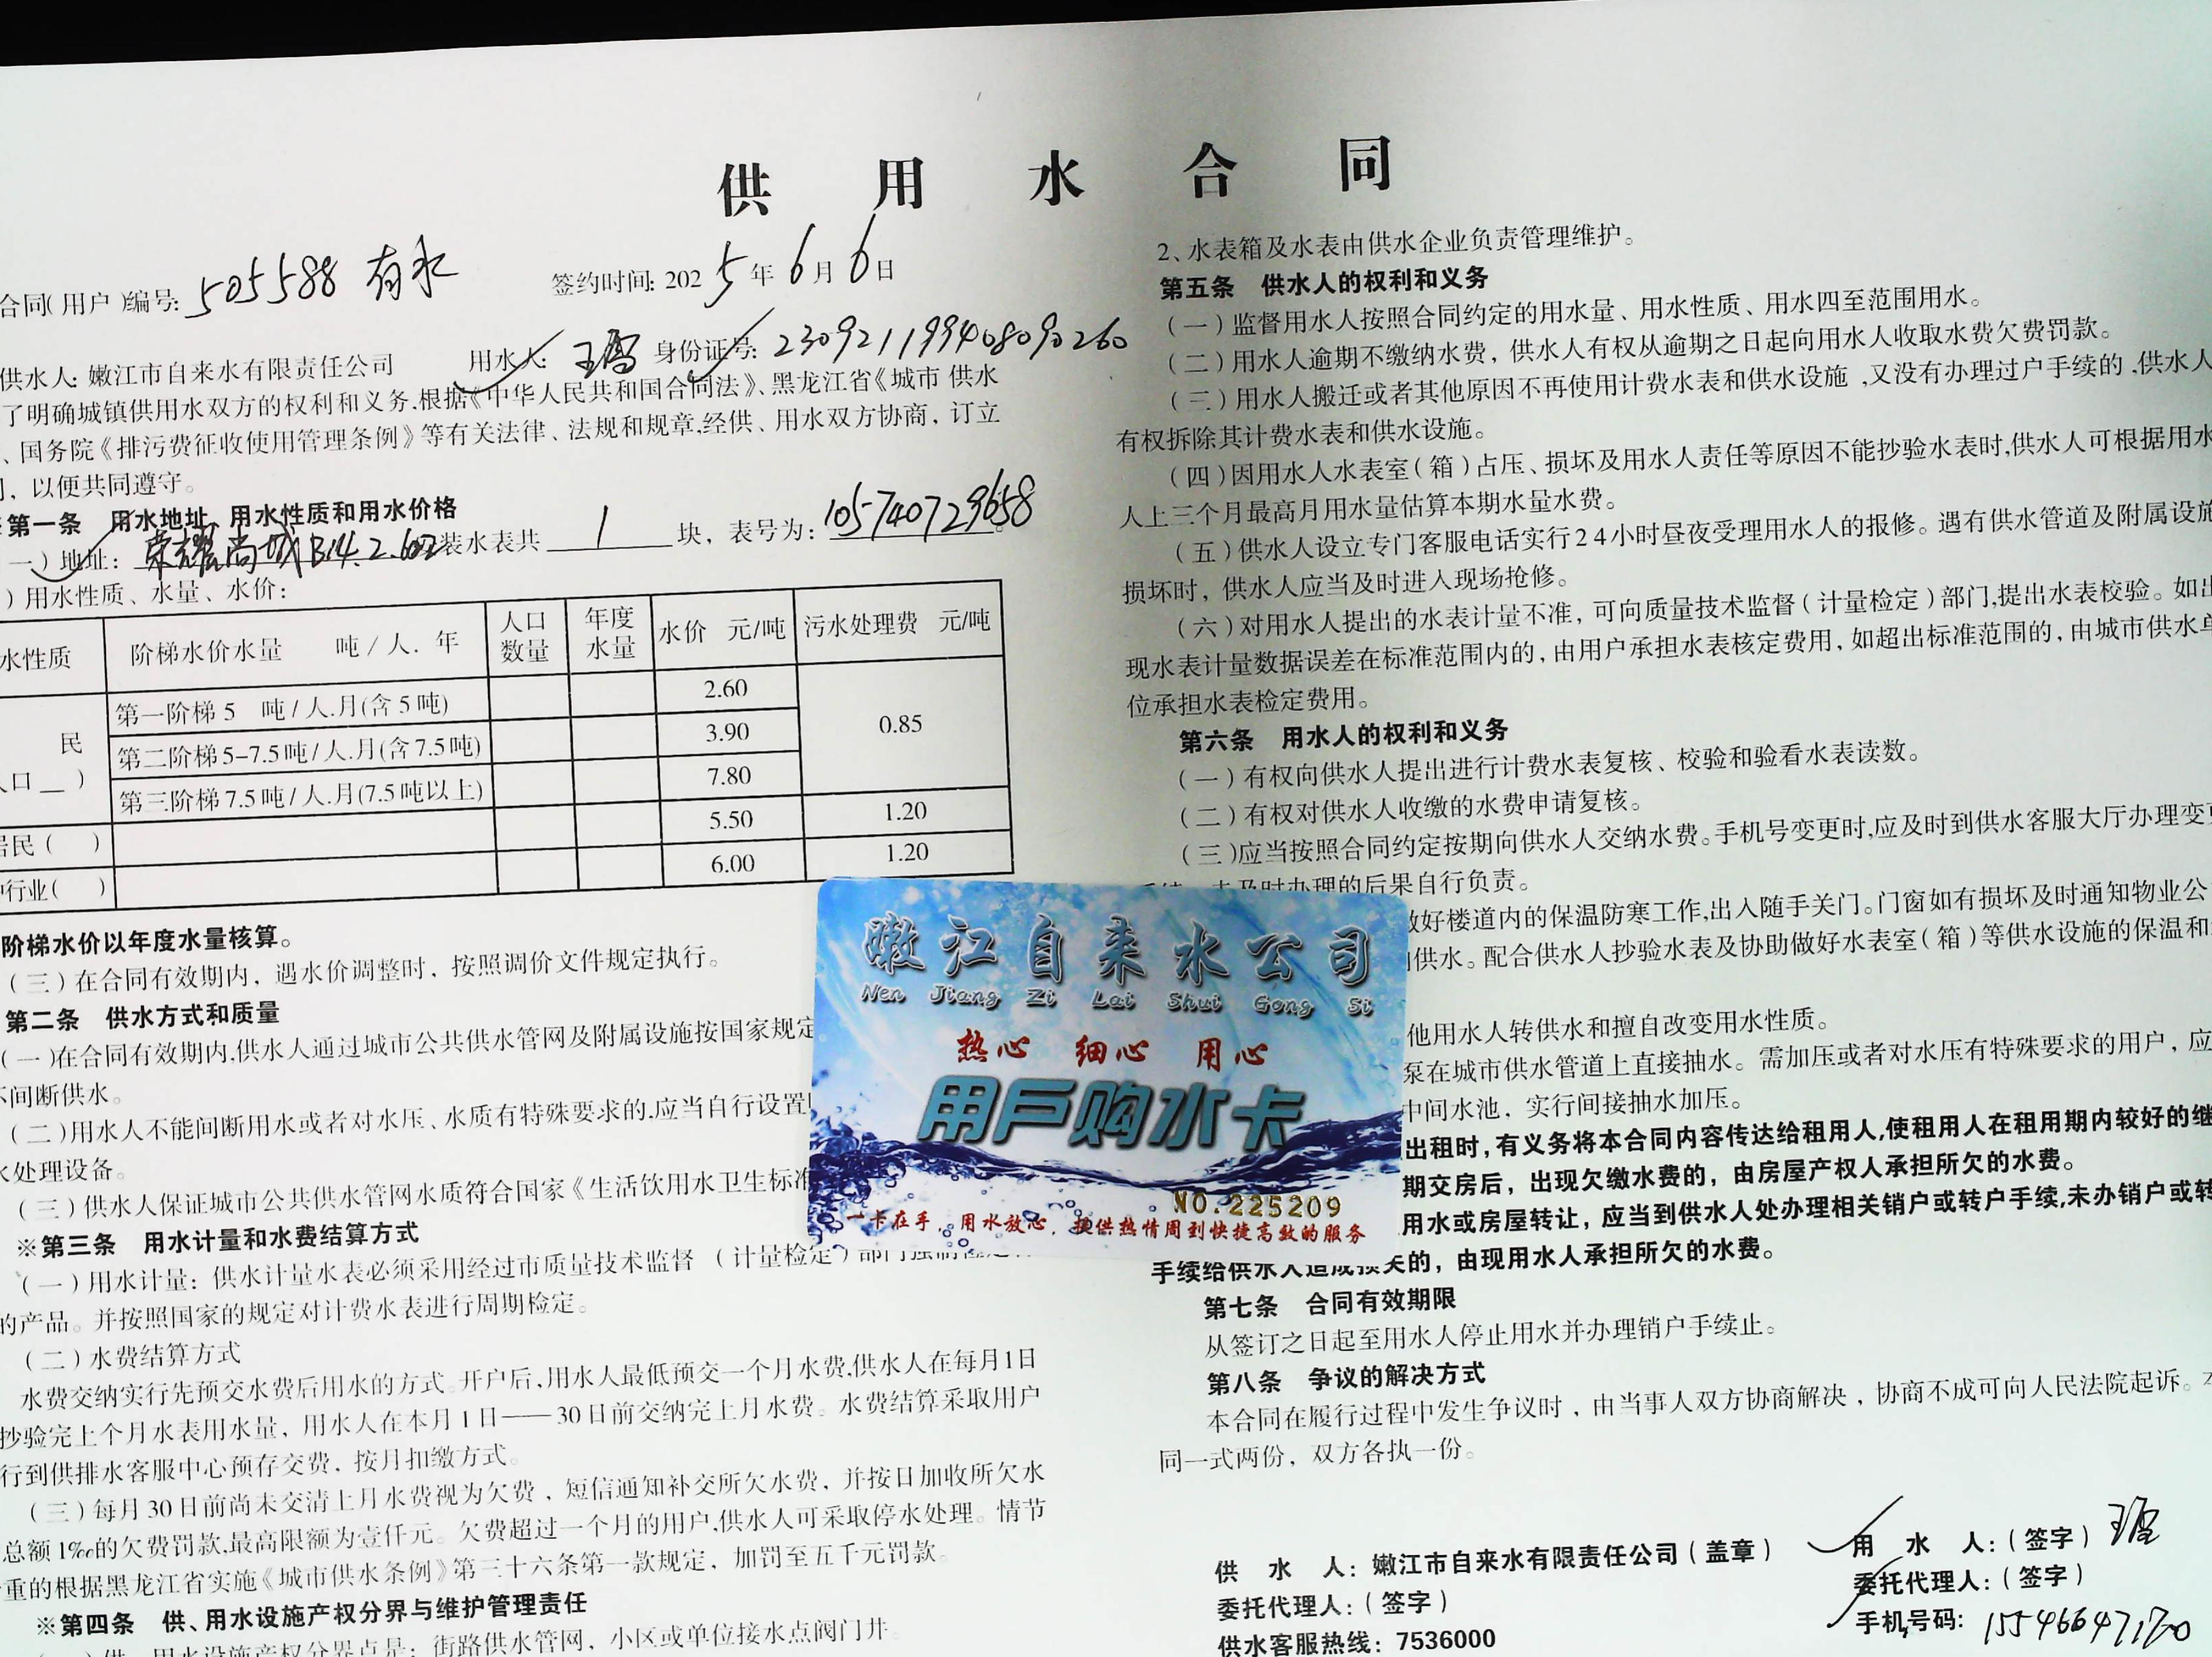 供用水合同
合同(用户)编号: 505588 有水
签约时间: 2025年6月6日
供水人: 嫩江市自来水有限责任公司 用水人: 王雪 身份证号: 230921199408090260
了明确城镇供用水双方的权利和义务,根据《中华人民共和国合同法》、黑龙江省《城市 供水
、国务院《排污费征收使用管理条例》等有关法律、法规和规章,经供、用水双方协商，订立
，以便共同遵守。
第一条 用水地址、用水性质和用水价格
一)地址: 荣耀尚城B14.2.602装水表共 1 块，表号为: 105740723658。
)用水性质、水量、水价:
水性质 阶梯水价水量 吨/人.年 人口数量 年度水量 水价 元/吨 污水处理费 元/吨
民 口 ) 第一阶梯5 吨/人.月(含5吨) 2.60 0.85
第二阶梯5-7.5吨/人.月(含7.5吨) 3.90
第三阶梯7.5吨/人.月(7.5吨以上) 7.80
居民( ) 5.50 1.20
行业( ) 6.00 1.20
阶梯水价以年度水量核算。
(三)在合同有效期内，遇水价调整时，按照调价文件规定执行。
第二条 供水方式和质量
(一)在合同有效期内,供水人通过城市公共供水管网及附属设施按国家规定
不间断供水。
(二)用水人不能间断用水或者对水压、水质有特殊要求的,应当自行设置
水处理设备。
(三)供水人保证城市公共供水管网水质符合国家《生活饮用水卫生标准
※第三条 用水计量和水费结算方式
(一)用水计量：供水计量水表必须采用经过市质量技术监督 (计量检定)部门强制检定
的产品。并按照国家的规定对计费水表进行周期检定。
(二)水费结算方式
水费交纳实行先预交水费后用水的方式。开户后,用水人最低预交一个月水费,供水人在每月1日
抄验完上个月水表用水量，用水人在本月1日——30日前交纳完上月水费。水费结算采取用户
行到供排水客服中心预存交费，按月扣缴方式。
(三)每月30日前尚未交清上月水费视为欠费，短信通知补交所欠水费，并按日加收所欠水
总额1‰的欠费罚款,最高限额为壹仟元。欠费超过一个月的用户,供水人可采取停水处理。情节
重的根据黑龙江省实施《城市供水条例》第三十六条第一款规定，加罚至五千元罚款。
※第四条 供、用水设施产权分界与维护管理责任
供、用水设施产权分界点是：街路供水管网，小区或单位接水点阀门井。
2、水表箱及水表由供水企业负责管理维护。
第五条 供水人的权利和义务
(一)监督用水人按照合同约定的用水量、用水性质、用水四至范围用水。
(二)用水人逾期不缴纳水费，供水人有权从逾期之日起向用水人收取水费欠费罚款。
(三)用水人搬迁或者其他原因不再使用计费水表和供水设施，又没有办理过户手续的,供水人
有权拆除其计费水表和供水设施。
(四)因用水人水表室(箱)占压、损坏及用水人责任等原因不能抄验水表时,供水人可根据用水
人上三个月最高月用水量估算本期水量水费。
(五)供水人设立专门客服电话实行24小时昼夜受理用水人的报修。遇有供水管道及附属设施
损坏时，供水人应当及时进入现场抢修。
(六)对用水人提出的水表计量不准，可向质量技术监督(计量检定)部门,提出水表校验。如出
现水表计量数据误差在标准范围内的，由用户承担水表核定费用，如超出标准范围的，由城市供水单
位承担水表检定费用。
第六条 用水人的权利和义务
(一)有权向供水人提出进行计费水表复核、校验和验看水表读数。
(二)有权对供水人收缴的水费申请复核。
(三)应当按照合同约定按期向供水人交纳水费。手机号变更时,应及时到供水客服大厅办理变更
未及时办理的后果自行负责。
做好楼道内的保温防寒工作,出入随手关门。门窗如有损坏及时通知物业公
供水。配合供水人抄验水表及协助做好水表室(箱)等供水设施的保温和
他用水人转供水和擅自改变用水性质。
泵在城市供水管道上直接抽水。需加压或者对水压有特殊要求的用户，应
中间水池，实行间接抽水加压。
出租时，有义务将本合同内容传达给租用人,使租用人在租用期内较好的继
期交房后，出现欠缴水费的，由房屋产权人承担所欠的水费。
用水或房屋转让，应当到供水人处办理相关销户或转户手续,未办销户或转
手续给供水人造成损失的，由现用水人承担所欠的水费。
第七条 合同有效期限
从签订之日起至用水人停止用水并办理销户手续止。
第八条 争议的解决方式
本合同在履行过程中发生争议时，由当事人双方协商解决，协商不成可向人民法院起诉。本
同一式两份，双方各执一份。
供 水 人：嫩江市自来水有限责任公司(盖章)
委托代理人：(签字)
供水客服热线：7536000
用 水 人：(签字) 王雪
委托代理人：(签字)
手机号码: 15546647170
嫩江自来水公司
Nen Jiang Zi Lai Shui Gong Si
热心 细心 用心
用户购水卡
NO.225209
一卡在手，用水放心，提供热情周到快捷高效的服务